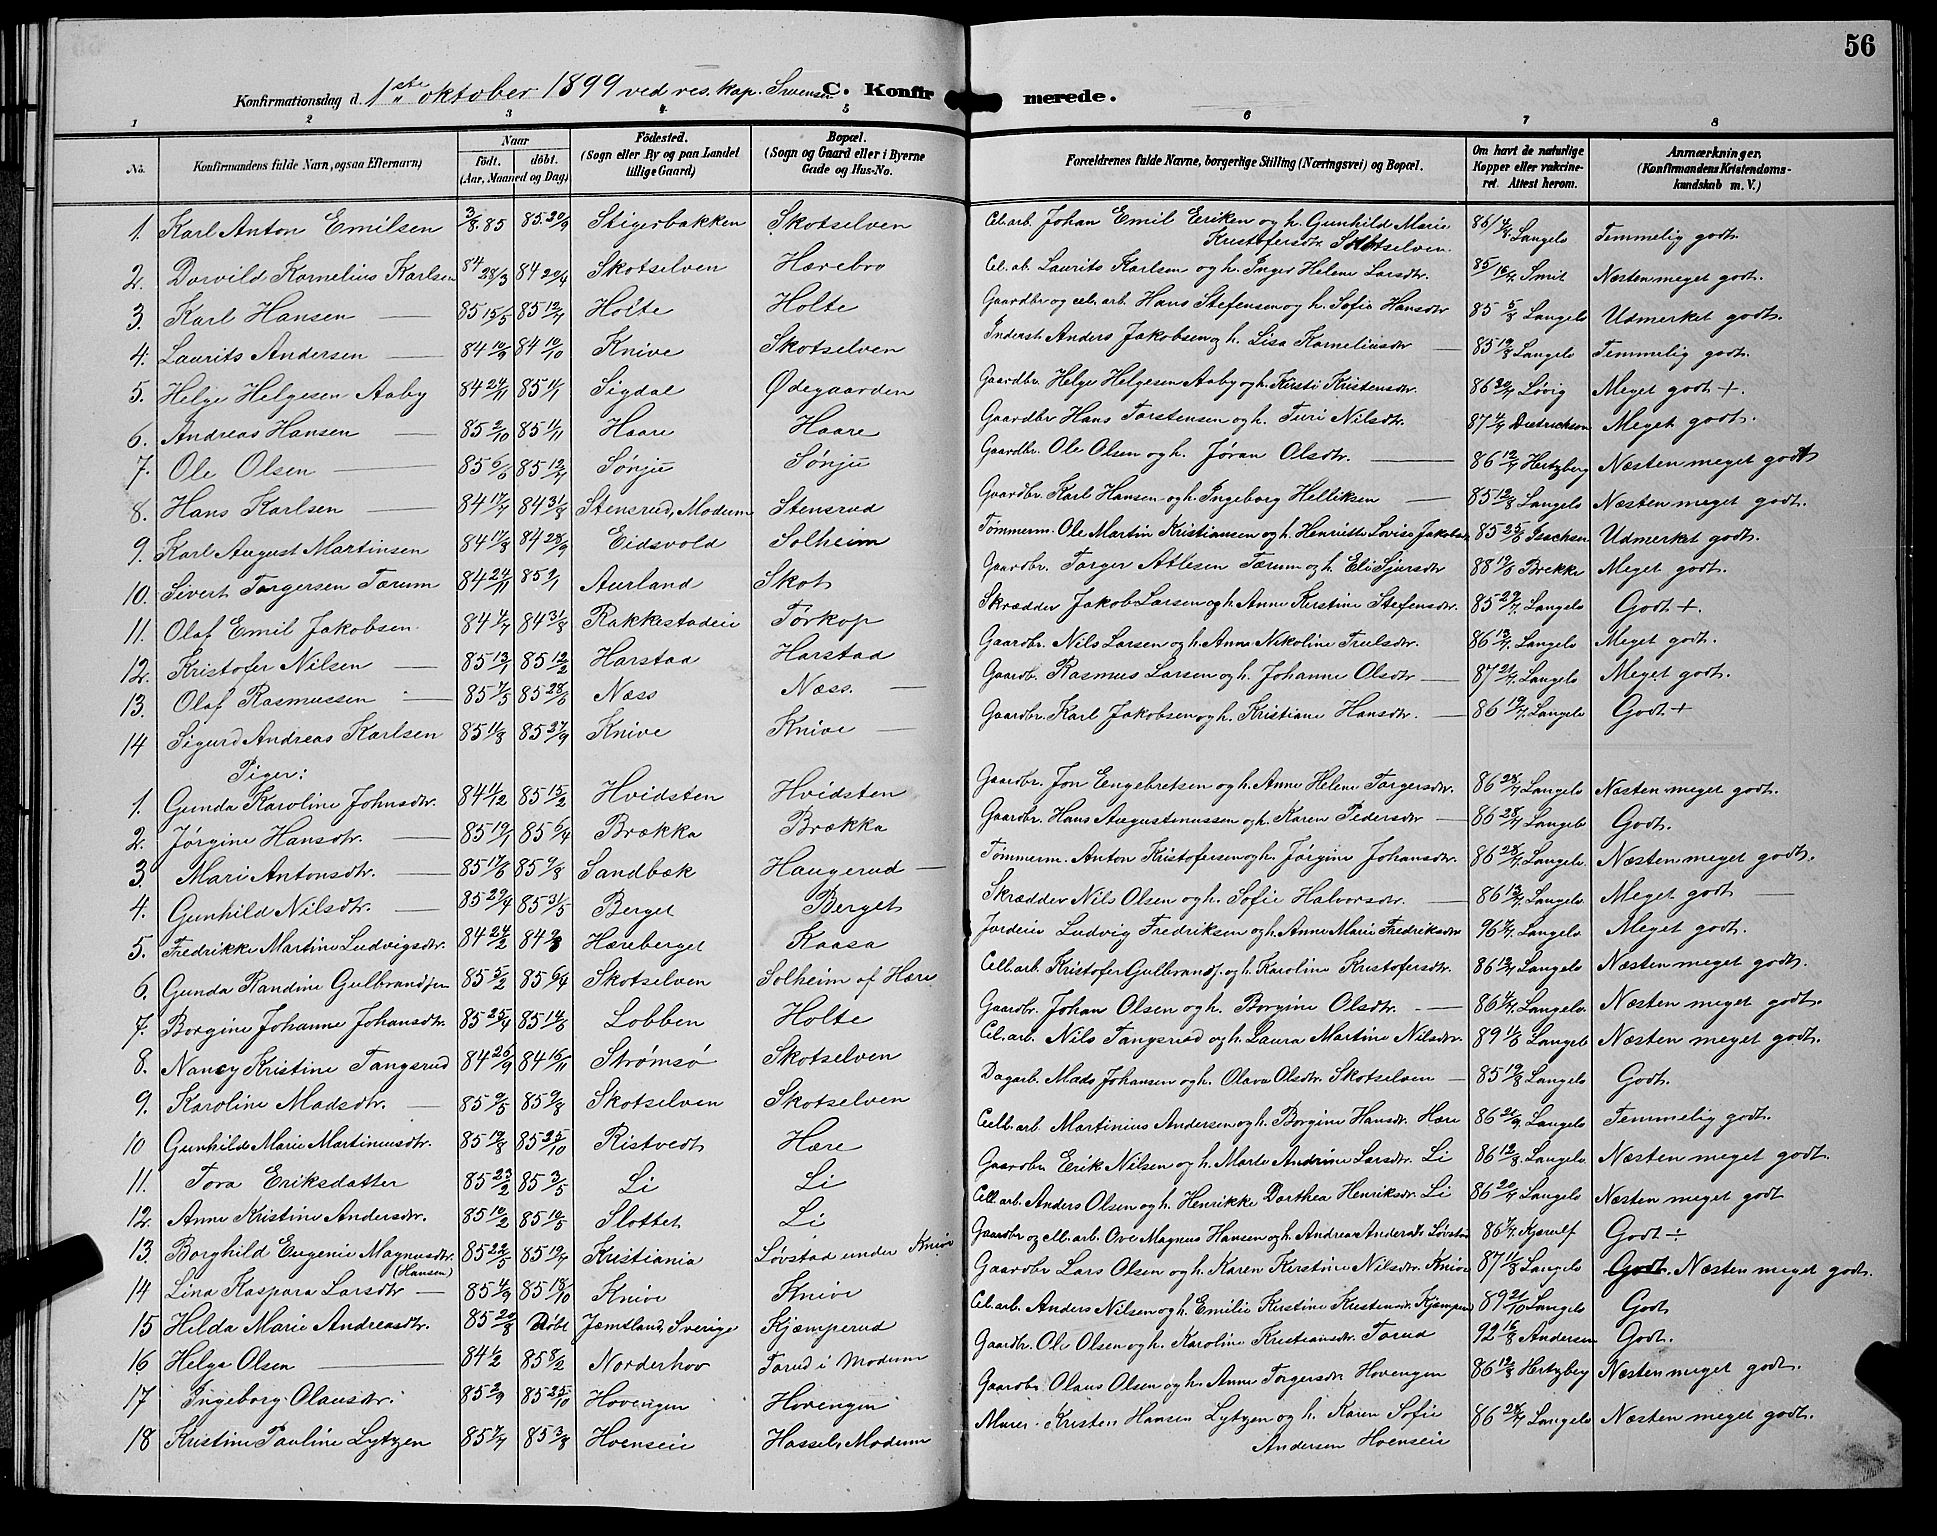 56
Konfirmationsdag d. 1ste oktober 1899 ved res. kap. C. Konfirmerede.
1 2 3 4 5 6 7 8
No. Konfirmandens fulde Navn, ogsaa Efternavn) Naar født. døbt. (Aar, Maaned og Dag) Födested. (Sogn eller By og paa Landet tillige Gaard) Bopæl. (Sogn og Gaard eller i Byerne Gade og Hus-No. Forældrenes fulde Navne, borgerlige Stilling (Næringsvei) og Bopæl. Om havt de naturlige Kopper eller vakcineret. Attest herom. Anmærkninger. (Konfirmandens Kristendomskundskab m. V.)
1. Karl Anton Emilsen 3/8 85 85 20/9 Stigerbakken Skotselven Cel. arb. Johan Emil Eriken og h. Gunhild Marie Kristofersdtr. Skotselven 86 14/8 Langels Temmelig godt.
2. Dorvild Kornelius Karlsen 84 28/3 84 20/4 Skotselven Hærebro Cel. ab. Laurits Karlsen og h. Inger Helene Larsdtr. 85 16/4 Smit Næsten meget godt.
3. Karl Hansen 85 15/5 85 12/7 Holte Holte Gaardbr og cel. arb. Hans Stefensen og h. Sofie Hansdtr 85 5/8 Langels Udmerket godt.
4. Laurits Andersen 84 10/9 84 19/10 Knive Skotselven Inderst Anders Jakobsen og h. Lisa Korneliusdtr 85 19/8 Langels Temmelig godt.
5. Helge Helgesen Aaby 84 24/11 85 1/1 Sigdal Ødegaarden Gaardbr. Helge Helgesen Aaby og h. Kirsti Kristensdtr. 86 20/7 Løvig Meget godt +.
6. Andreas Hansen 85 2/10 85 1/11 Haare Haare Gaardbr Hans Torstensen og h. Turi Nilsdtr. 87 4/7 Diedrichsen Meget godt.
7. Ole Olsen 85 6/6 85 12/7 Sønju Sønju Gaardbr. Ole Olsen og h. Jøran Olsdtr. 86 12/7 Hertzberg Næsten meget godt
8. Hans Karlsen 84 17/7 84 31/8 Stensrud, Modum Stensrud Gaardbr. Karl Hansen og h. Ingeborg Helliksen 85 12/8 Langels Næsten meget godt.
9. Karl August Martinsen 84 17/8 84 28/9 Eidsvold Solheim Tømmerm. Ole Martin Kristiansen og h. Henriette Lovise Jakobsdr 85 25/8 Isachsen Udmerket godt.
10. Sivert Torgersen Tærum 84 24/11 85 9/1 Aurland Skot Gaardbr. Torger Atlesen Tærum og h. Eli Sjursdtr 88 19/8 Brekke Meget godt.
11. Olaf Emil Jakobsen 84 4/7 84 31/8 Rakkestadeie Torkop Skrædder Jakob Larsen og h. Anne Kirstine Stefensdtr. 85 29/7. Langels Godt +.
12. Kristofer Nilsen 85 13/1 85 12/2 Harstad Harstad Gaardbr. Nils Larsen og h. Anne Nikoline Trulsdtr. 86 13/7. Langels Meget godt.
13. Olaf Rasmussen 85 7/5 85 28/6 Næss Næss. Gaardb. Rasmus Larsen og h. Johanne Olsdtr 87 21/7. Langels Meget godt.
14 Sigurd Andreas Karlsen 85 11/8 85 27/9 Knive Knive Gaardbr. Karl Jakobsen og h. Kristiane Hansdtr. 86 19/7. Langels Godt +
Piger:
1. Gunda Karoline Johnsdtr. 84 11/12 85 15/2 Hvidsten Hvidsten Gaardbr. Jon Engebretsen og h. Anne Helene Torgersdtr. 86 28/7 Langels Næsten meget godt.
2. Jørgine Hansdtr. 85 19/1 85 6/4 Brækka Brækka Gaardbr. Hans Augustinussen og h. Karen Pedersdtr 86 28/7 Langels Godt.
3. Mari Antonsdtr. 85 17/6 85 9/8 Sandbæk Haugerud Tømmerm. Anton Kristofersen og h. Jørgine Johansdtr. 86 28/7. Langels Næsten meget godt.
4. Gunhild Nilsdtr. 85 29/4 85 31/5 Berget Berget Skrædder Nils Olsen og h. Sofie Halvorsdtr. 86 13/7. Langels Meget godt
5. Fredrikke Martine Ludvigsdtr. 84 24/2 84 9/3 Hæreberget Kaasa Jordeie Ludvig Fredriksen og h. Anne Marie Fredriksdtr 96 7/7. Langels Meget godt.
6. Gunda Randine Gulbrandsen 85 5/2 85 6/4 Skotselven Solheim af Hære Cell. arb. Kristofer Gulbrands. og h. Karoline Kristofersdtr. 86 12/7. Langels Næsten meget godt.
7. Borgine Johanne Johansdtr 85 25/4 85 14/6 Lobben Holte Gaardbr. Johan Olsen og h. Borgine Olsdtr. 86 4/7. Langels. Næsten meget godt.
8. Nancy Kristine Tangsrud 84 26/9 84 16/11 Strømsø Skotselven Cel. arb. Nils Tangsrud og h. Laura Martine Nilsdtr. 89 11/6 Langels Næsten meget godt.
9. Karoline Madsdtr. 85 9/5 85 9/8 Skotselven Skotselven Dagarb. Mads Johansen og h. Olava Olsdtr. Skotselven 85 19/8 Langels Godt.
10 Gunhilde Marie Martiniusdtr. 85 19/8 85 25/10 Ristvedt Hære Cell. arb. Martinius Andersen og h. Borgine Hansdtr. Hære 86 21/9. Langels Temmelig godt.
11. Tora Eriksdatter 85 23/2 85 3/5 Li Li Gaardbr Erik Nilsen og h. Marte Andrine Larsdtr. Li 86 12/8. Langels. Næsten meget godt.
12. Anne Kristine Andersdtr. 85 10/2 85 10/5 Slottet Li Cell. arb. Anders Olsen og h. Henrikke Dorthea Henriksdr. Li 86 20/7 Langels Næsten meget godt
13. Borghild Eugenie Magnusdtr. (Hansen) 85 22/5 85 19/7 Kristiania Løvstad under Knive Gaardbr og cell. arb. Ove Magnus Hansen og h. Andrea Andersdr. Løvstad 86 7/7. Kjerulf Godt ÷
14 Lina Kaspara Larsdtr 85 4/9 85 18/10 Knive Knive Gaardbr Lars Olsen og h. Karen Kirstine Nilsdtr. Knive 87 11/8 Langels Godt. Næsten meget godt.
15 Hilda Marie Andreasdtr. 85 20/8 Døbt Jæmtland, Sverige Kjæmperud Cel. arb. Anders Nilsen og h. Emilie Kirstine Kristensdr. Kjæmperud 89 21/10 Langels Godt
16. Helga Olsen 84 1/2 85 8/2 Norderhov Torud i Modum Gaardbr. Ole Olsen og h. Karoline Kristiansdtr. Torud 92 16/8 Andersen Godt.
17 Ingeborg Olausdtr. 85 2/9 85 25/10 Hovengen Hovengen Gaardbr Olaus Olsen og h. Anne Torgersdr Hovengen 86 12/8 Hertzberg Næsten meget godt.
18 Kristine Pauline Lytzen 85 7/7 85 3/8 Hoenseie Hassel, Modum Murer Kristen Hansen Lytzen og h. Karen Sofie Andersen Hoenseie 86 28/7 Langels Næsten meget godt.